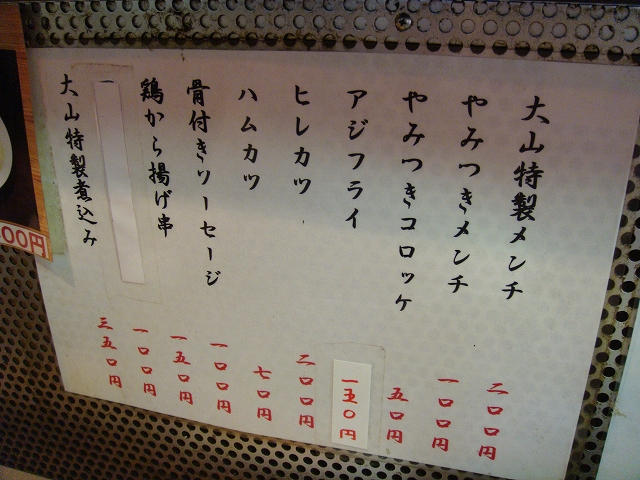 大山特製メンチ 二〇〇円
やみつきメンチ 一〇〇円
やみつきコロッケ 五〇円
アジフライ 一五〇円
ヒレカツ 二〇〇円
ハムカツ 七〇円
骨付きソーセージ 一〇〇円
鶏から揚げ串 一五〇円
一〇〇円
大山特製煮込み 三五〇円
00円